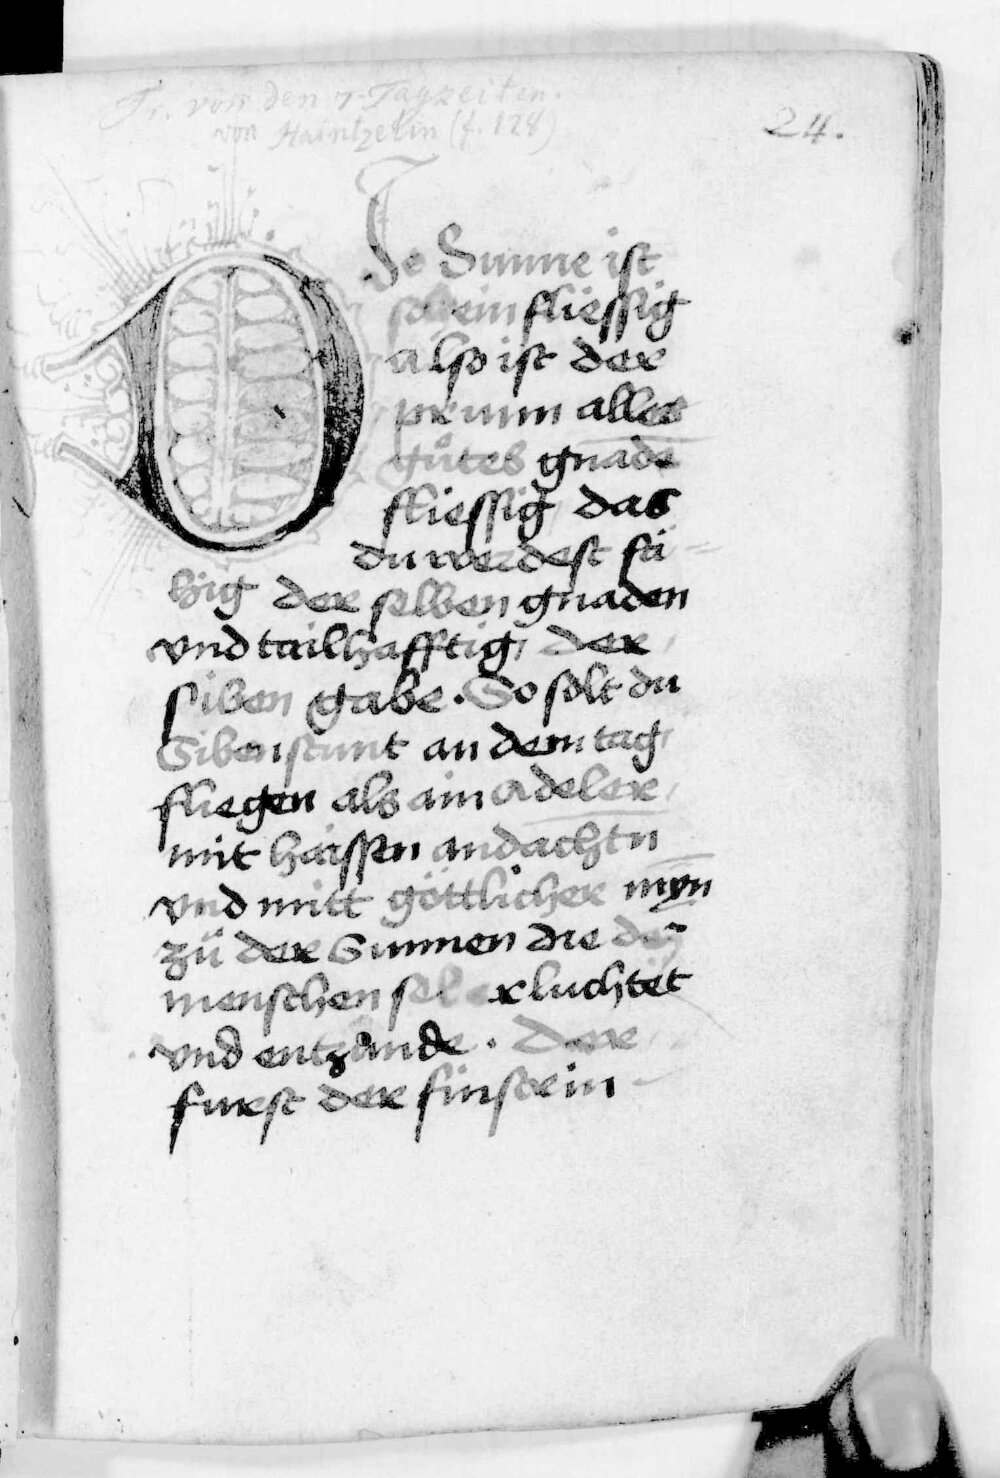 Tr. von den 7 Tagzeiten.
von Haintzelin (f. 128)
24.
DJe Sunne ist
schein fliessig
also ist der
prunn alles
guͦtes gnade
fliessig das
du werdest fä=
hig der selben gnaden
vnd tailhafftig, der
siben gabe. So solt du
Siben stunt an dem tag,
fliegen als ain adeler,
mit haissen andachtn
vnd mitt göttlicher myn
zuͦ der Sunnen die dez
menschen sel erluchtet
vnd entzünde. Der
furst der finstrin